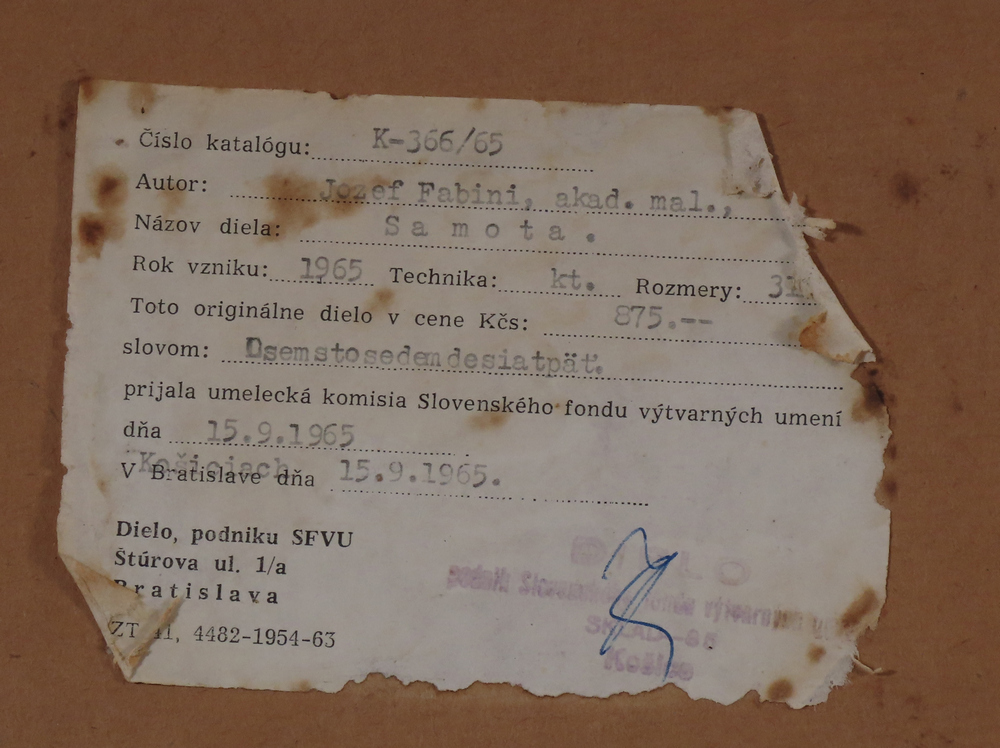 Číslo katalógu: K-366/65
Autor: Jozef Fabini, akad. mal.,
Názov diela: Samota.
Rok vzniku: 1965 Technika: kt. Rozmery:
Toto originálne dielo v cene Kčs: 875.--
slovom: Osemstosedemdesiatpäť.
prijala umelecká komisia Slovenského fondu výtvarných umení
dňa 15.9.1965
Košiciach
V Bratislave dňa 15.9.1965.
Dielo, podniku SFVU
Štúrova ul. 1/a
Bratislava
ZT 41, 4482-1954-63
podnik
Košice